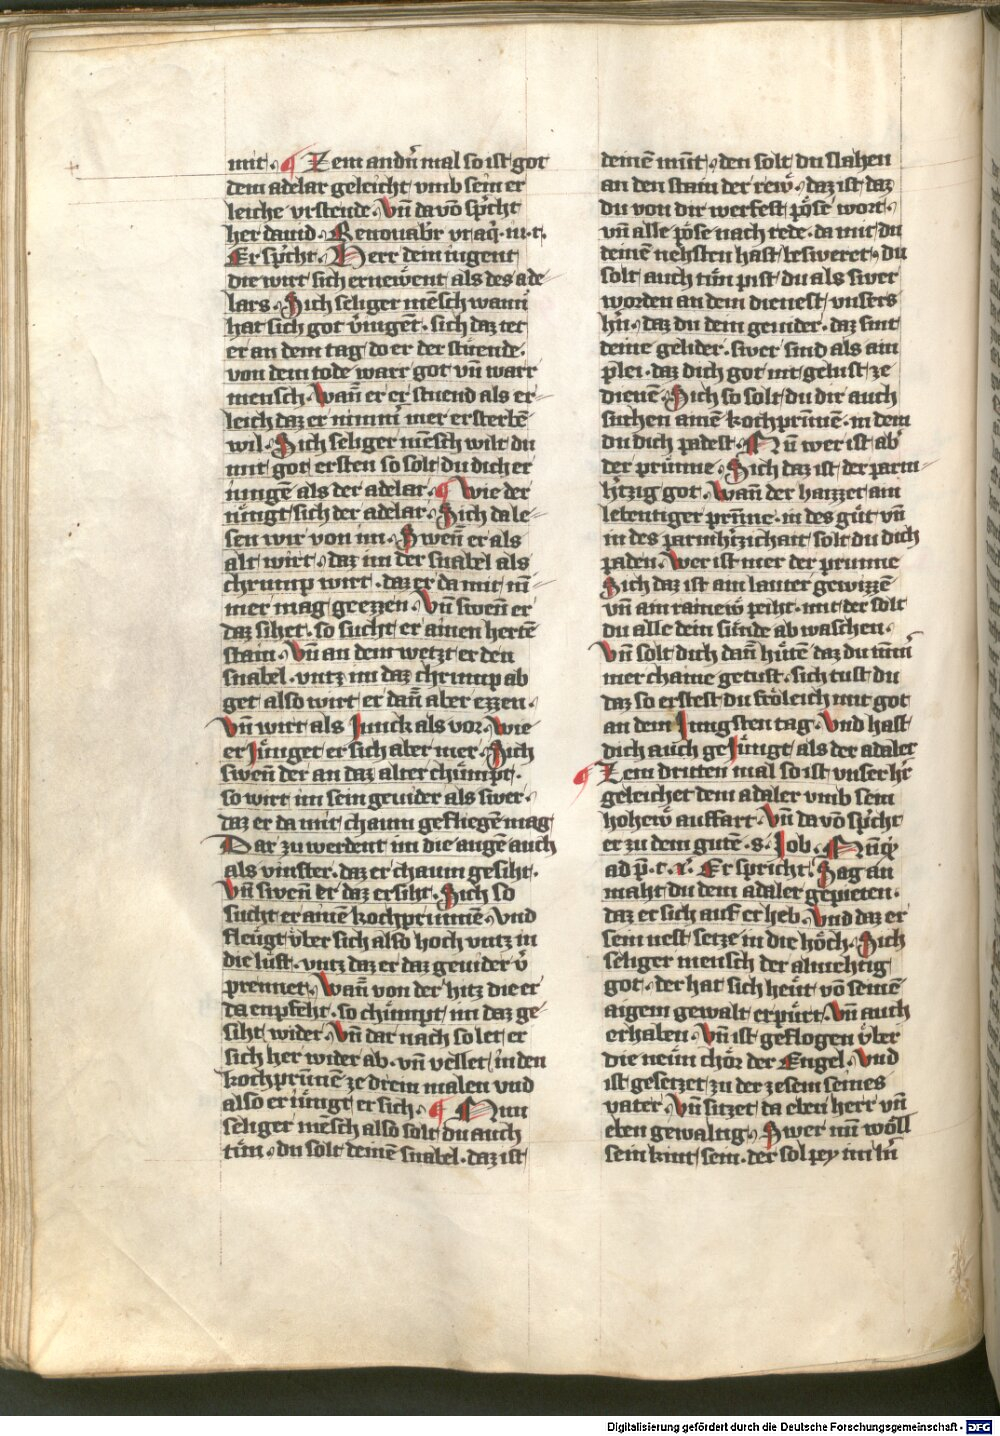 mit. ¶ Zem andn̄ mal so ist got
dem adelar geleicht vmb sein er
leiche vrstende. Vn̄ da vō sp̄cht
her dauid. Renouabr̄ vt aq̄. iu. t.
Er sp̄cht. Herr dein iugent
die wirt sich ernewent als des ade-
lars. Sich seliger mēsch wann̄
hat sich got v̄iugēt. sich daz tet
er an dem tag do er der stuͤende.
von dem tode warr got vn̄ warr
mensch. Wan̄ er er stuend als er-
leich daz er nimm̄ mer ersterbē
wil. Sich seliger mēsch wilt du
mit got ersten so solt du dich er
iungē als der adelar. ¶ Wie der
iuͤngt sich der adelar. Sich da le-
sen wir von im. Swen̄ er als
alt wirt. daz im der snabel als
chrump wirt. daz er da mit nī-
mer mag geezzen. Vn̄ swen̄ er
daz sihet. so sucht er ainen hertē
stain. Vn̄ an dem wetzt er den
snabel. vntz im daz chrump ab
get also wirt er dan̄ aber ezzen.
Vn̄ wirt als Junck als vor. Wie
er Juͤnget er sich aber mer. Sich
swen̄ der an daz alter chuͤmpt.
so wirt im sein geuider als swer.
daz er da mit chaum gefliegē mag
Dar zu werdent im die augē auch
als vinster. daz er chaum gesiht.
Vn̄ swen̄ er daz ersiht. Sich so
sucht er ainē kochprunnē. vnd
fleugt vber sich also hoch vntz in
die luft. vntz daz er daz geuider v̄
prennet. Wan̄ von der hitz die er
da enpfeht. so chuͤmpt im daz ge-
siht wider. Vn̄ dar nach so let er
sich her wider ab. vn̄ vellet in den
kochprunnē ze drein malen vnd
also er iuͤngt er sich. ¶ Nun
seliger mēsch also solt du auch
tuͤn. du solt deinē snabel. daz ist
deinē mūt. den solt du slahen
an den stain der rew. daz ist daz
du von dir werfest poͤse wort.
vn̄ alle poͤse nach rede. da mit du
deinē nehsten hast besweret. du
solt auch tuͤn pist du als swer
worden an dem dienest vnsers
hn̄. daz du dem geuider. daz sint
deine gelider. swer sind als ain
plei. daz dich got nit gelust ze
dienē. Sich so solt du dir auch
suchen ainē kochprunnē. in dem
du dich padest. Nū wer ist ab̄
der prunne. Sich daz ist der parm-
hr̄tzig got. Wan̄ der haizzet ain
lebentiger prūne. in des guͤt vn̄
in des parmhr̄zichait solt du dich
paden. Wer ist mer der prunne
Sich daz ist ain lauter gewizzē
vn̄ ain rainew peiht. mit der solt
du alle dein suͤnde ab waschen.
Vn̄ solt dich dan̄ huͤtē daz du nim̄
mer chaine getust. sich tust du
daz so erstest du froͤleich mit got
an dem Jungsten tag. Vnd hast
dich auch geJuͤngt als der adaler
¶ Zem dritten mal so ist vnser hr̄
geleichet dem adaler vmb sein
hohew auffart. Vn̄ da vō sp̄cht
er zu dem gutē. s. Job. Nūq̄
ad p̄. t. x. Er spricht. Sag an
maht du dem adaler gepieten.
daz er sich auf er heb. Vnd daz er
sein nest setze in die hoͤch. Sich
seliger mensch der almehtig
got. der hat sich heut vō seinē
aigem gewalt erpuͤrt. Vn̄ auch
erhaben. Vn̄ ist geflogen vͤber
die neun choͤr der Engel. Vnd
ist gesetzet zu der zesem seines
vater. Vn̄ sitzet da eben herr vn̄
eben gewaltig. Swer nū woͤll
sein kint sein. der sol pey im hn̄
Digitalisierung gefördert durch die Deutsche Forschungsgemeinschaft - DFG